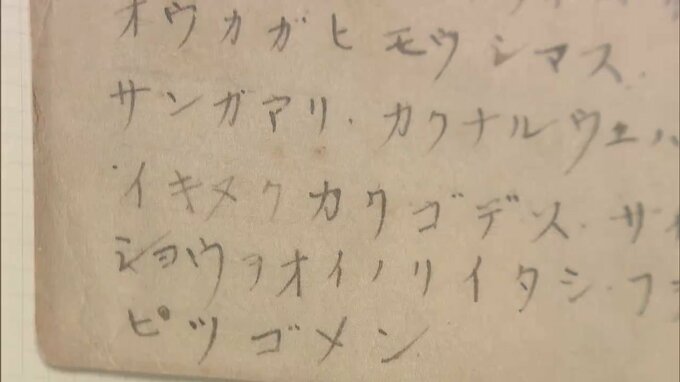 オウカガヒモウシマス.
サンガアリ.カクナルウエハ
イキヌクカクゴデス.サイ
ショウヲオイノリイタシ.フ
ピツゴメン